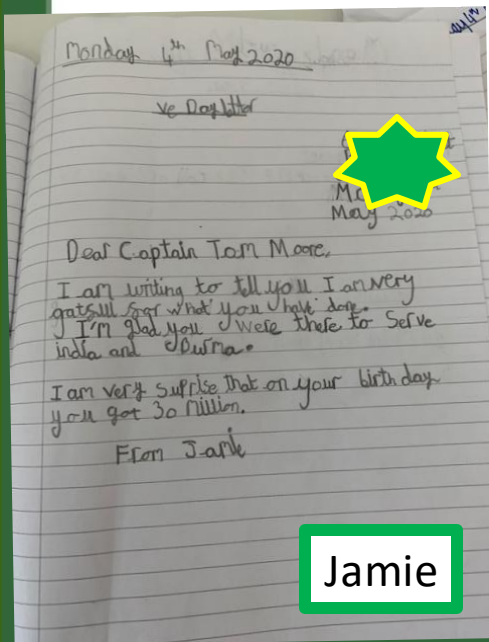 Monday 4th May 2020
ve Day letter
May 2020
Dear Captain Tom Moore,
I am writing to tell you I am very
gatsull for what you have done.
I I'm glad you were there to serve
india and Burma.
I am very suprise that on your birthday
you got 30 million.
From Jamie
Jamie